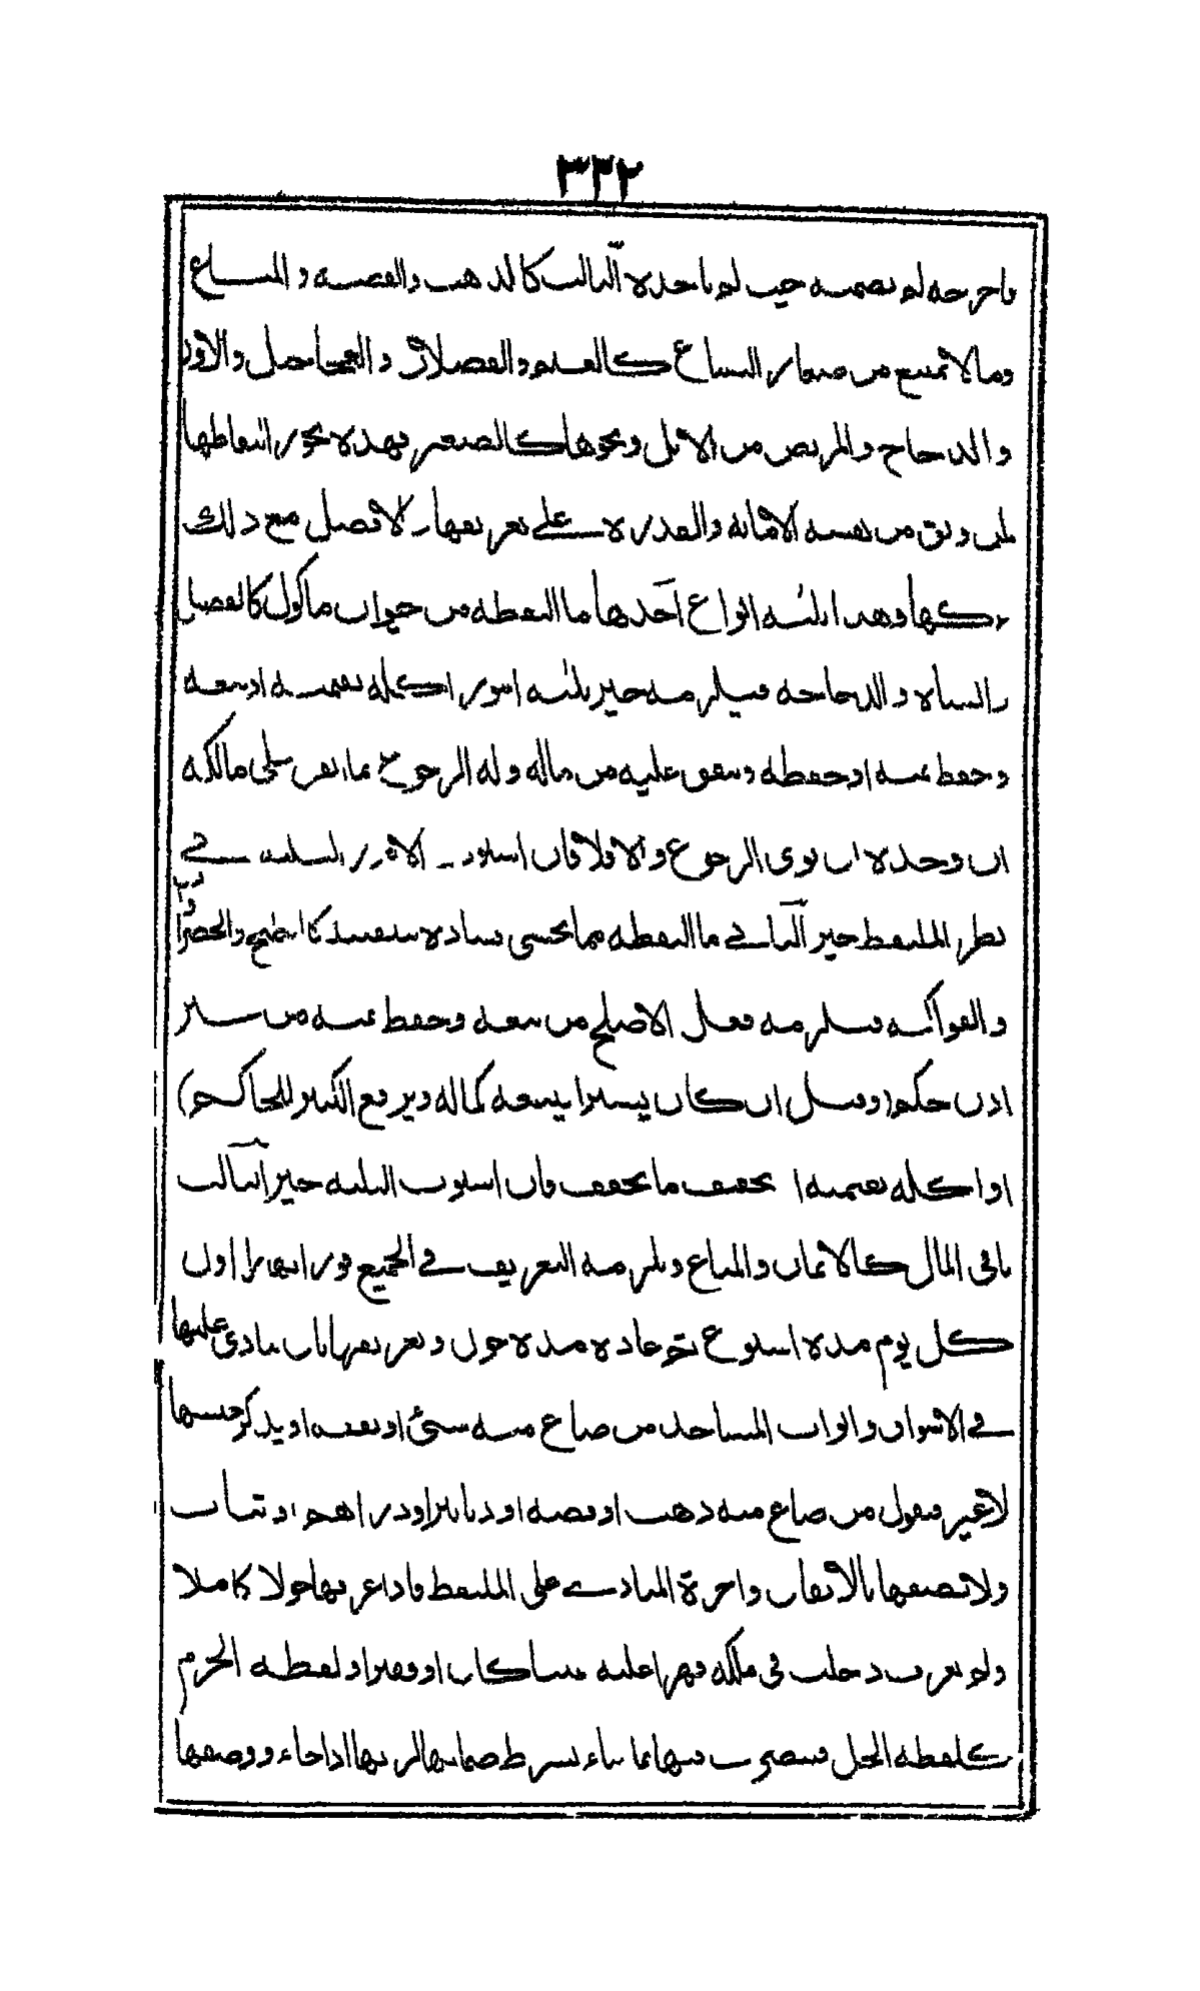 ٣٣٢
فأخرجه لم يضمنه حيث لم يأخذه الثالث كالذهب والفضة والمتاع
وما لا يمتنع من صغار السباع كالغنم والفصلان والعجاجيل والاوز
والدجاج والمريض من الابل ونحوها كالصغير فهذه يجوز التقاطها
لمن وثق من نفسه الامانة والقدرة على تعريفها والافضل مع ذلك
تركها وهذا ثلثة انواع أحدها ما التقطه من حيوان مأكول كالفصيل
والشاه والدجاجة فيلزمه خير ثلثه امور اكله بقيمته او بيعه
وحفظ ثمنه او حفظه وينفق عليه من ماله وله الرجوع بما انفق على مالكه
ان وجده ان نوى الرجوع والا فلا فان استوت الامور الثلثه في
نظر الملتقط خير الثاني ما التقطه مما يخشى فساده كالبطيخ والخضراوات
والفواكه فيلزمه فعل الاصلح من بيعه وحفظ ثمنه من غير
اذن حاكم (وقيل ان كان يسيرا يبيعه كماله ويرفع الكثير للحاكم)
او اكله بقيمته او تجفيف ما يجفف فان استوت الثلثه خير الثالث
باقي المال كالاثمان والمتاع ويلزمه التعريف في الجميع فورا نهارا اول
كل يوم مدة اسبوع ثم عادة مدة حول وتعريفها بان ينادي عليها
في الاسواق وابواب المساجد من ضاع منه شئ او نفقه او يذكر جنسها
لا غير فيقول من ضاع منه ذهب او فضه او دنانير او دراهم او ثياب
ولا يصفها بالاتفاق واجرة المنادي على الملتقط فاذا عرفها حولا كاملا
ولم تعرف دخلت في ملكه قهرا عليه غنيا كان او فقيرا ولقطه الحرم
كلقطه الحل فيتصرف فيها بما شاء بشرط ضمانها لربها اذا جاء ووصفها